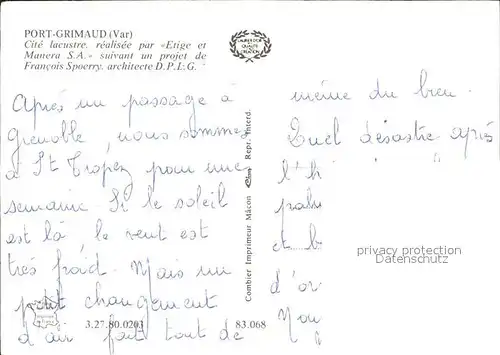 PORT-GRIMAUD (Var)
Cité lacustre, réalisée par «Etige et
Manera S.A.» suivant un projet de
François Spoerry, architecte D.P.L.G.
Après un passage à
Grenoble, nous sommes
à St Tropez pour une
semaine. Si le soleil
est là, le vent est
très froid. Mais un
petit changement
d'air fait tout de
3.27.80.0203
83.068
Combier Imprimeur Mâcon
Repr. Interd.
même du bien.
Quel désastre après
l'h
et b
d'or
privacy protection
Datenschutz